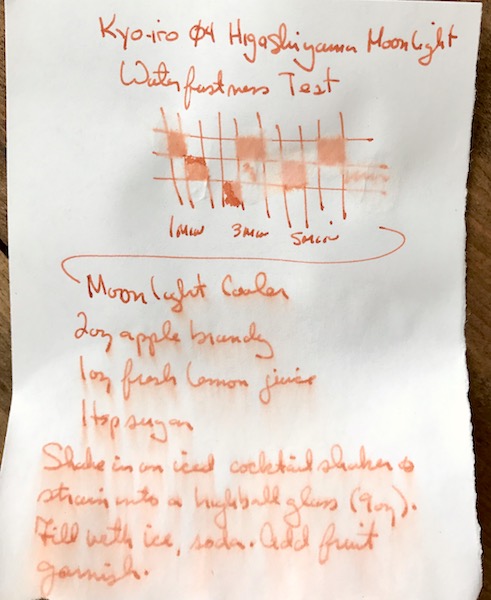 Kyo-iro 04 Higashiyama Moonlight
Waterfastness Test
1min 3min 5min
Moonlight Cooler
2oz apple brandy
1oz fresh lemon juice
1tsp sugar
Shake in an iced cocktail shaker &
strain into a highball glass (9oz).
Fill with ice, soda. Add fruit
garnish.